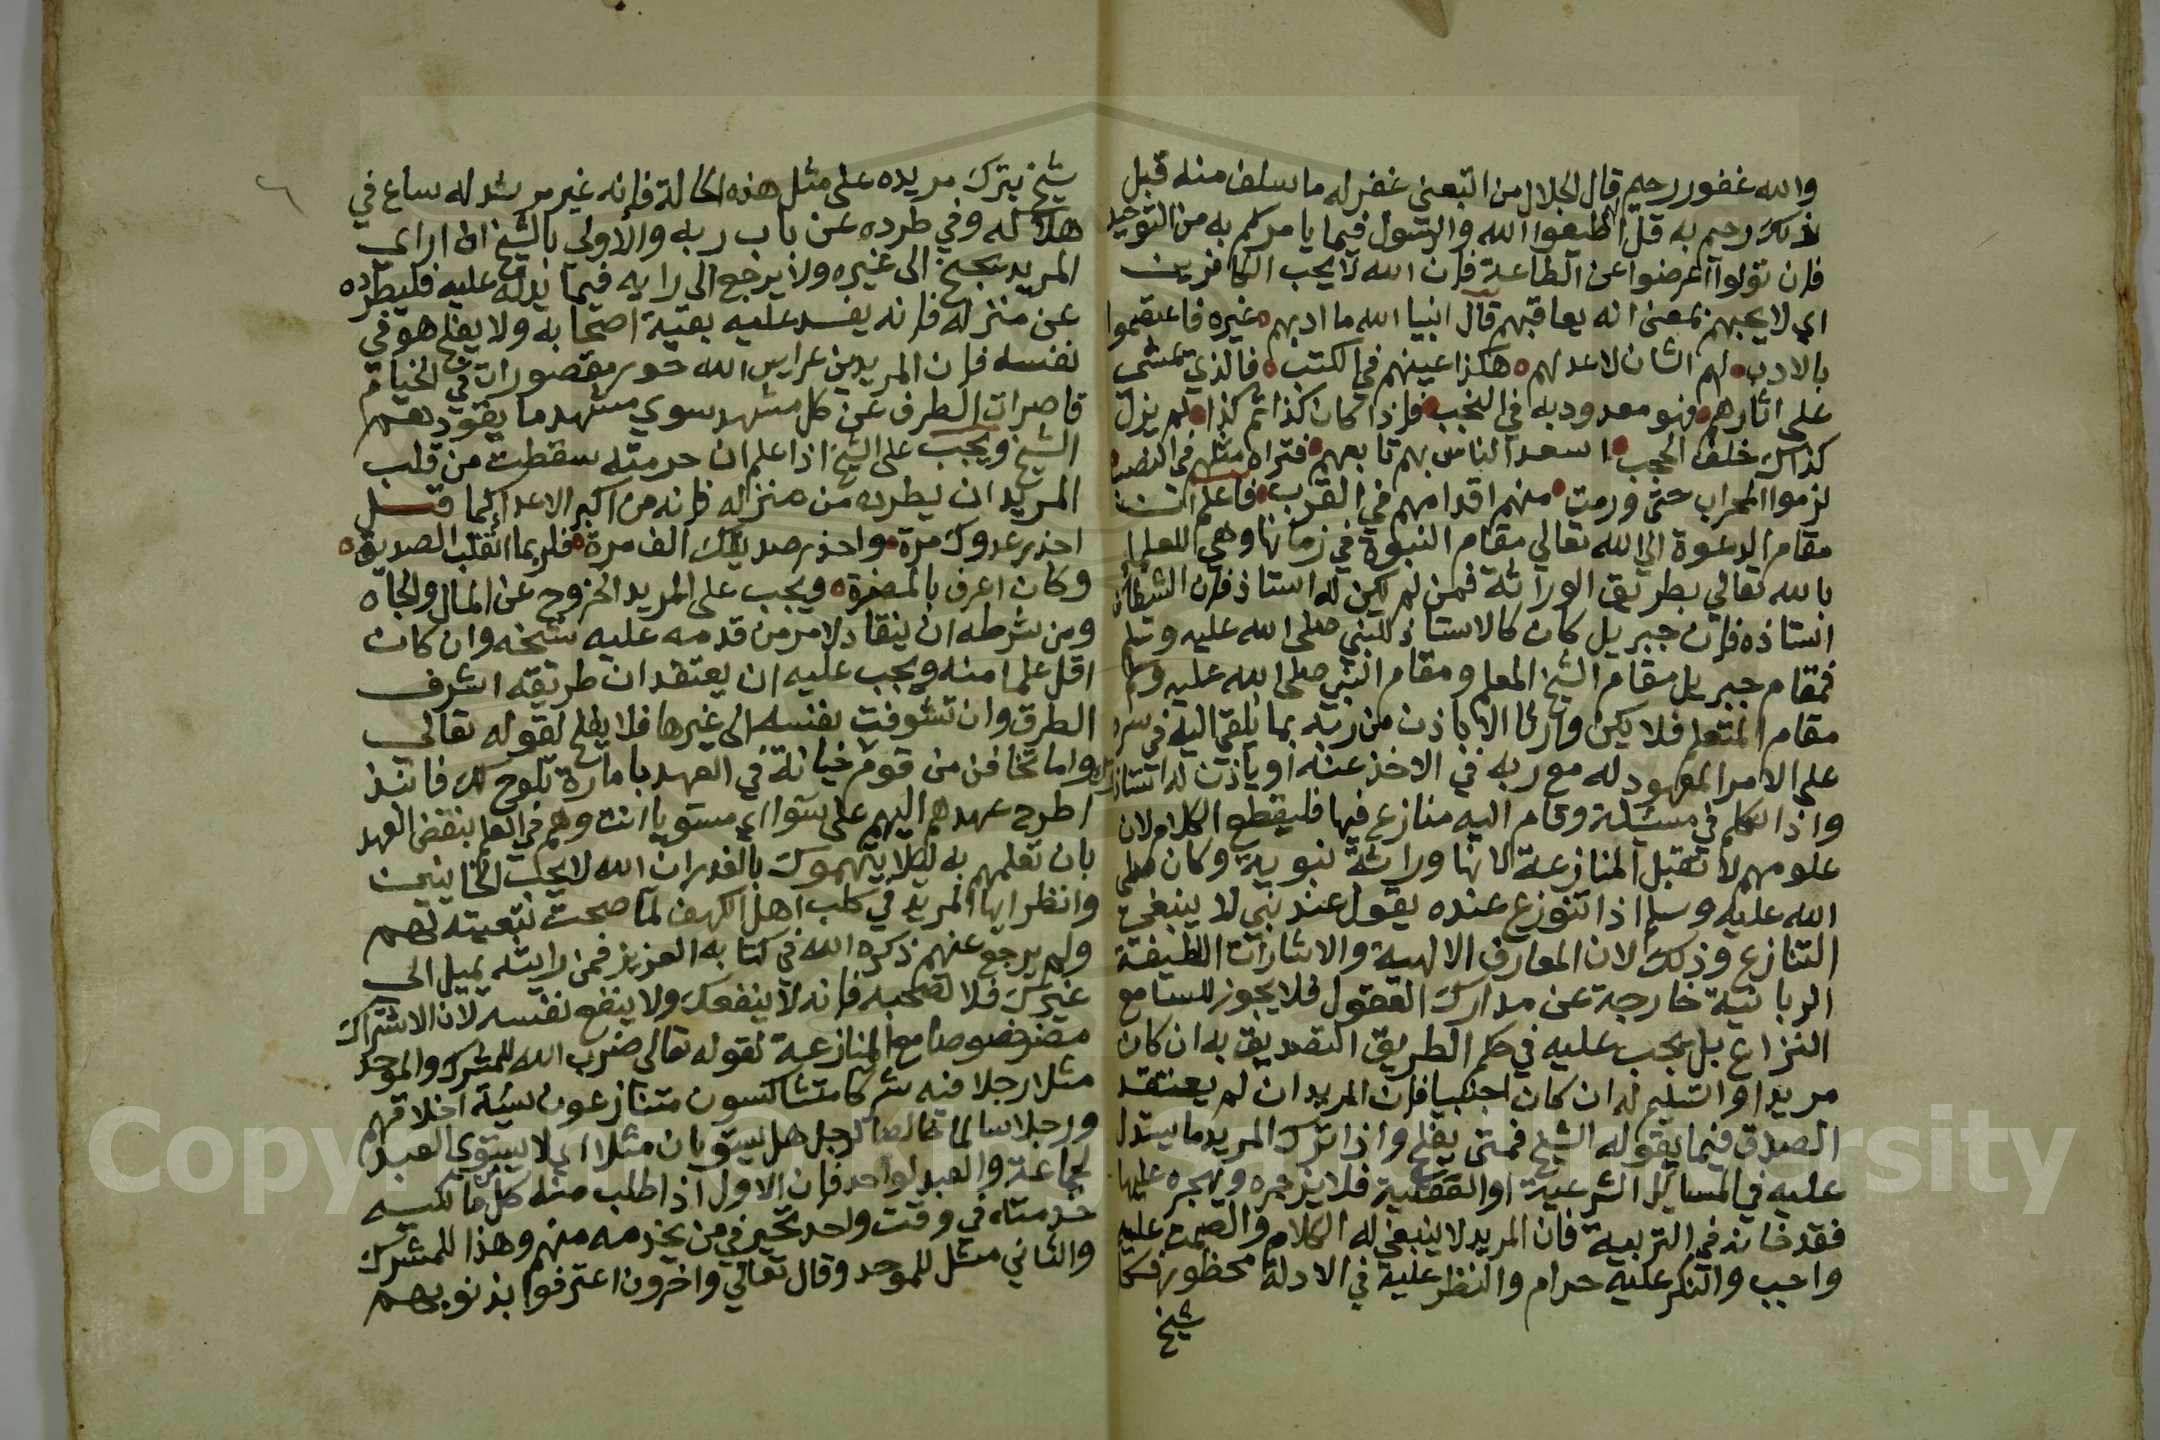 والله غفور رحيم قال الجلال من اتبعني غفر له ما سلف منه قبل
ذلك رحيم به قل لهم اطيعوا الله والرسول فيما يامركم به من التوحيد
فان تولوا اعرضوا عن الطاعة فان الله لا يحب الكافرين
اي لا يحبهم بمعنى انه يعاقبهم قال انبيا الله ما ادبهم غيره فاعتصموا
بالادب لهم الشان لاعد لهم هكذا عينهم في الكتب فالذي تمشى
على اثارهم فهو معدود به في النجب فاذا كان كذا ثم كذا لم يزل
كذاك خلف الحجب اسعد الناس بهم تابعهم فتراه مثلهم في النصب
لزموا المحراب حتى ورمت منهم اقدامهم في القرب فاعلم ان
مقام الدعوة الى الله تعالي مقام النبوة في زمانها وهي للعلما
بالله تعالي بطريق الوراثة فمن لم يكن له استاذ فان الشيطان
استاذه فان جبريل كان كالاستاذ للنبي صلى الله عليه وسلم
فمقام جبريل مقام الشيخ المعلم ومقام النبي صلى الله عليه وسلم
مقام المتعلم فلا يكن وارثا الا باذن من ربه بما يلقي اليه في سره
على الامر المعهود له مع ربه في الاخذ عنه او ياذن له استاذه
واذا تكلم في مسئلة وقام اليه منازع فيها فليقطع الكلام لان
علومهم لا تقبل المنازعة لانها وراثة نبوية وكان صلى
الله عليه وسلم اذا تنوزع عنده يقول عند نبي لا ينبغي
التنازع وذلك لان المعارف الالهية والاشارات اللطيفة
الربانية خارجة عن مدارك العقول فلا يجوز للسامع
النزاع بل يجب عليه في حكم الطريق التصديق به ان كان
مريدا والتسليم له ان كان اجنبيا فان المريد ان لم يعتقد
الصدق فيما يقوله الشيخ فمتى يفلح واذا ترك المريد ما يستدل
عليه في المسايل الشرعية او العقلية فلا يزجره ويهجره عليها
فقد خانه في التربية فان المريد لا ينبغي له الكلام والصمت عليه
واجب والنكر عليه حرام والنظر عليه في الادلة محظور فكل
شيخ
شيخ يترك مريده على مثل هذه الحالة فانه غير مرشد له ساع في
هلاكه وفي طرده عن باب ربه والاولى بالشيخ اذا راي
المريد يجنح الى غيره ولا يرجع الى رايه فيما يدله عليه فليطرده
عن منزله فانه يفسد عليه بقية اصحابه ولا يفلح هو في
نفسه فان المريدين عرايس الله حور مقصورات في الخيام
قاصرات الطرف عن كل مشهد سوي مشهد ما يقودهم
الشيخ ويجب على الشيخ اذا علم ان حرمته سقطت من قلب
المريد ان يطرده من منزله فانه من اكبر الاعدا كما قيل
احذر عدوك مرة واحذر صديقك الف مرة فلربما انقلب الصديق
وكان اعرف بالمضرة ويجب على المريد الخروج عن المال والجاه
ومن شرطه ان ينقاد لامر من قدمه عليه شيخه وان كان
اقل علما منه ويجب عليه ان يعتقد ان طريقه اشرف
الطرق وان تشوفت نفسه الى غيرها فلا يفلح لقوله تعالي
واما تخافن من قوم خيانة في العهد بامارة تلوح لك فانبذ
اطرح عهدهم اليهم على سوا اي مستويا انت وهم في العلم بنقض العهد
بان تعلمهم به لئلا يتهموك بالغدر ان الله لا يحب الخاينين
وانظر ايها المريد في كلب اهل الكهف لما صحت تبعيته لهم
ولم يرجع عنهم ذكره الله في كتابه العزيز فمن رايته يميل الى
غيرك فلا تصحبه فانه لا ينفعك ولا ينفع نفسه لان الاشتراك
مضر خصوصا مع المنازعة لقوله تعالى ضرب الله للمشرك والموحد
مثلا رجلا فيه شركا متشاكسون متنازعون سيئة اخلاقهم
ورجلا سالما خالصا لرجل هل يستويان مثلا اي لا يستوي العبد
لجماعة والعبد لواحد فان الاول اذا طلب منه كل مالكيه
خدمته في وقت واحد تحير في من يخدمه منهم وهذا للمشرك
والثاني مثل للموحد وقال تعالي واخرون اعترفوا بذنوبهم